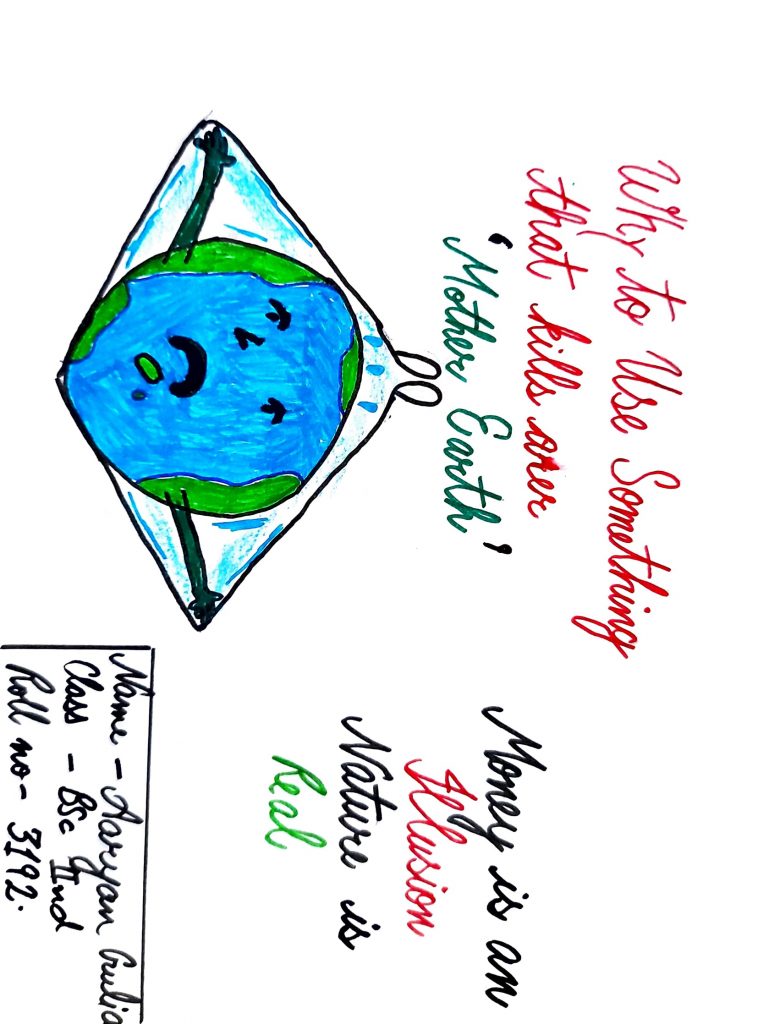 Why to Use Something
that kills over
'Mother Earth'
Money is an
Illusion
Nature is
Real
Name - Aaryan Gulia
Class - BSc IInd
Roll no - 3192.